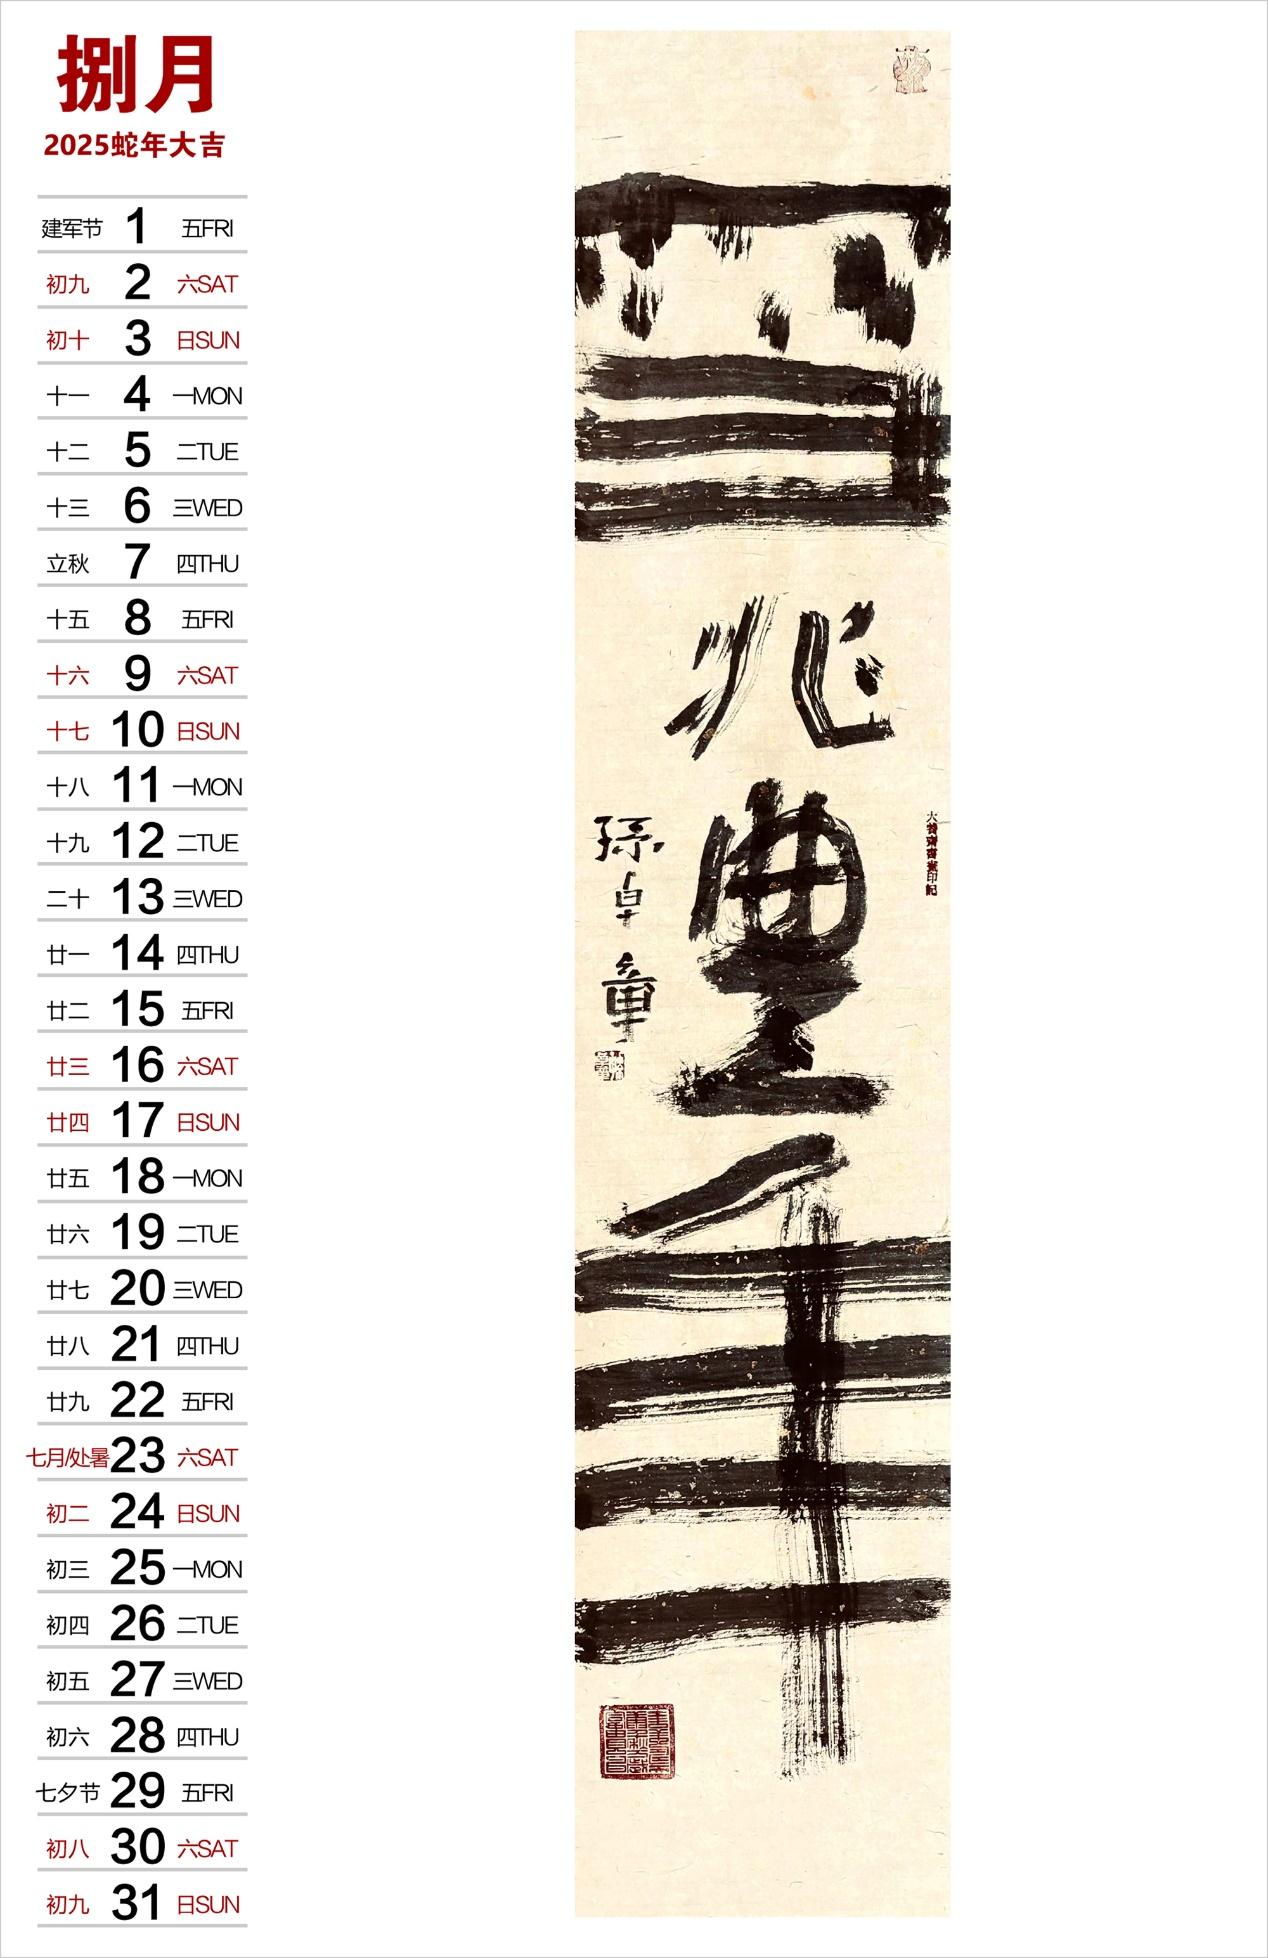 捌月
2025蛇年大吉
建军节 1 五FRI
初九 2 六SAT
初十 3 日SUN
十一 4 一MON
十二 5 二TUE
十三 6 三WED
立秋 7 四THU
十五 8 五FRI
十六 9 六SAT
十七 10 日SUN
十八 11 一MON
十九 12 二TUE
二十 13 三WED
廿一 14 四THU
廿二 15 五FRI
廿三 16 六SAT
廿四 17 日SUN
廿五 18 一MON
廿六 19 二TUE
廿七 20 三WED
廿八 21 四THU
廿九 22 五FRI
七月/处暑 23 六SAT
初二 24 日SUN
初三 25 一MON
初四 26 二TUE
初五 27 三WED
初六 28 四THU
七夕节 29 五FRI
初八 30 六SAT
初九 31 日SUN
雪兆豐年
孫卓章